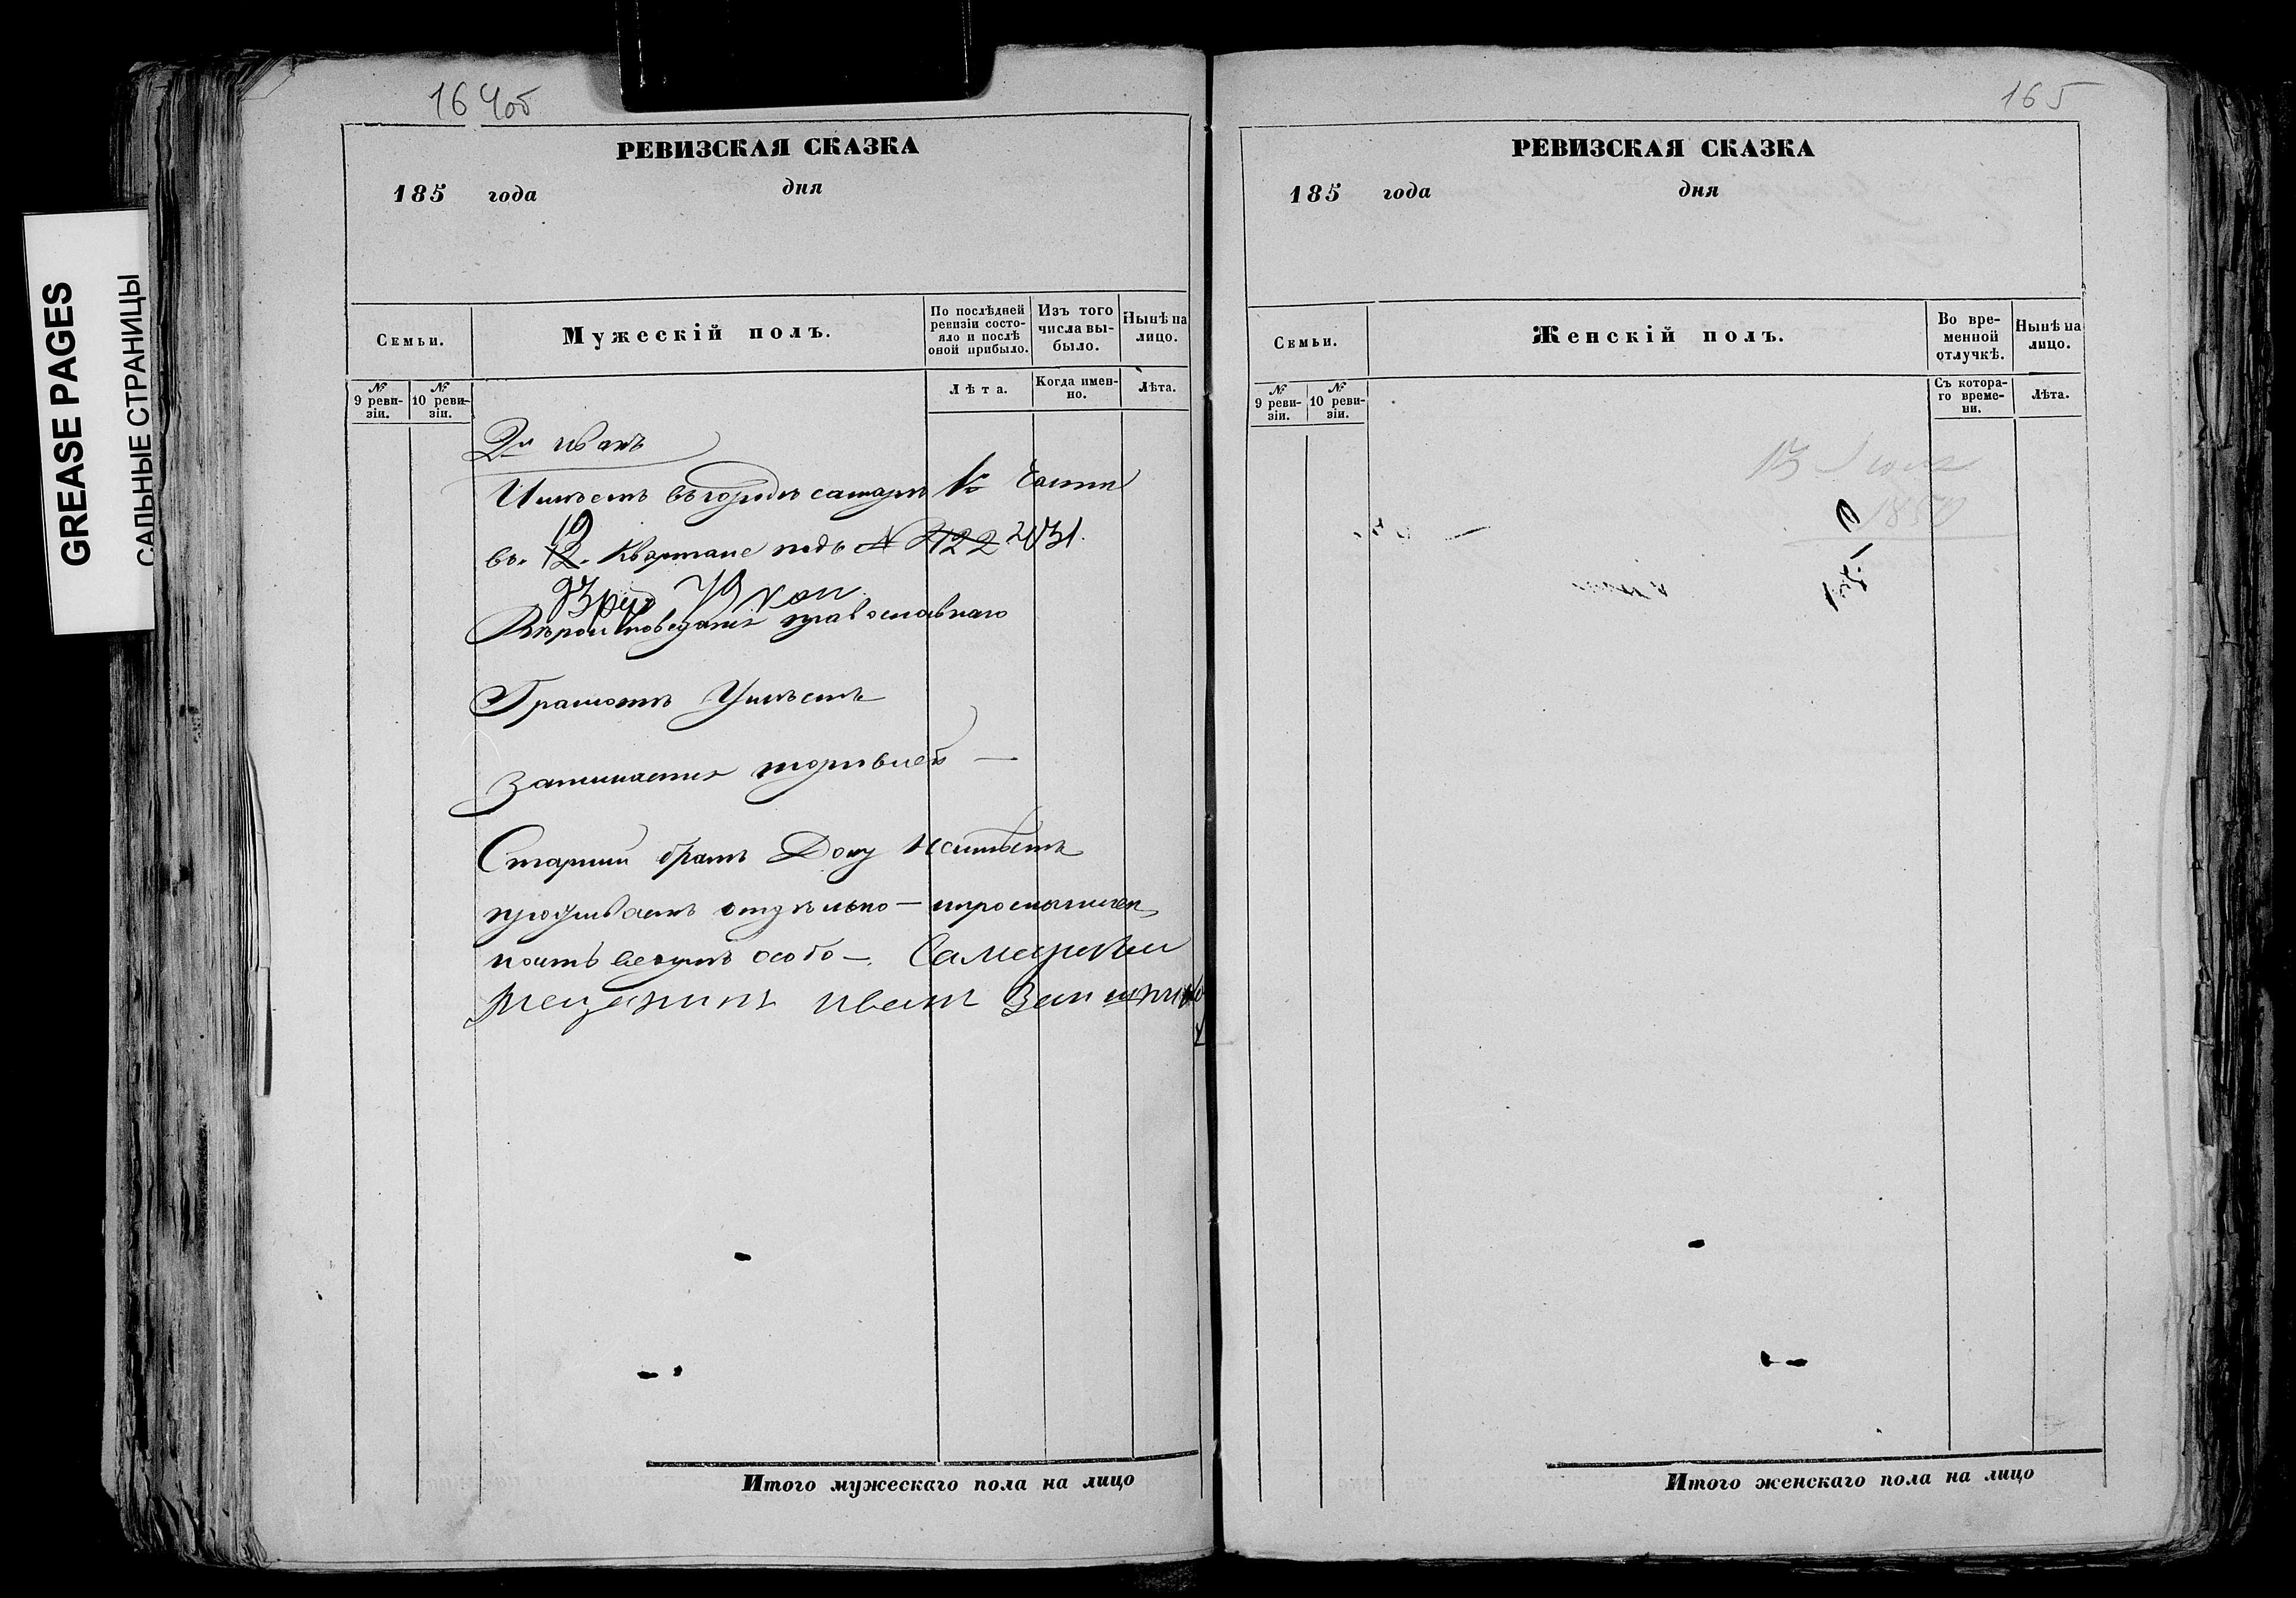 GREASE PAGES
САЛЬНЫЕ СТРАНИЦЫ
164об
РЕВИЗСКАЯ СКАЗКА
185 года дня
Семьи.
Мужескій полъ.
По послѣдней ревизіи состояло и послѣ оной прибыло.
Изъ того числа выбыло.
Нынѣ на лицо.
№ 9 ревизіи.
№ 10 ревизіи.
Лѣта.
Когда именно.
Лѣта.
2й иванъ
Имѣетъ въ городѣ самарѣ части
въ. 12. Квартале подъ № 122 2431.
93 руб 79 коп
Вѣроисповеданія православнаго
Грамотѣ Умѣетъ
Занимается торговлей —
Старший братъ Дому
проживаетъ отдѣльно — и промышлен
ность ведутъ особо —. Самарский
мещанинъ иванъ
Итого мужескаго пола на лицо
165
РЕВИЗСКАЯ СКАЗКА
185 года дня
Семьи.
Женскій полъ.
Во временной отлучкѣ.
Нынѣ на лицо.
№ 9 ревизіи.
№ 10 ревизіи.
Съ котораго времени.
Лѣта.
Итого женскаго пола на лицо